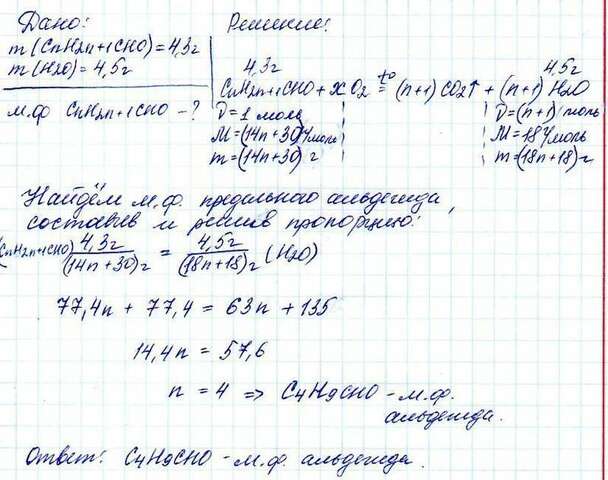 Дано:
m(CnH2n+1CHO)=4,3г
m(H2O)=4,5г
м.ф CnH2n+1CHO-?
Решение:
4,3г 4,5г
CnH2n+1CHO+xO2 t°= (n+1)CO2↑+(n+1)H2O
ν=1 моль ν=(n+1) моль
M=(14n+30)г/моль M=18г/моль
m=(14n+30)г m=(18n+18)г
Найдём м.ф. предельного альдегида,
составив и решив пропорцию:
(CnH2n+1CHO) 4,3г/(14n+30)г = 4,5г/(18n+18)г (H2O)
77,4n + 77,4 = 63n + 135
14,4n = 57,6
n = 4 => C4H9CHO - м.ф.
альдегида.
Ответ: C4H9CHO - м.ф. альдегида.